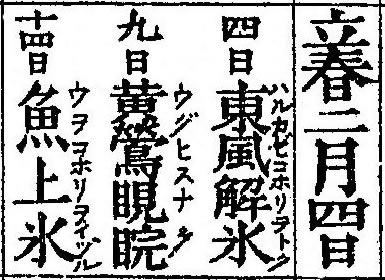 立春二月四日
四日東風解氷
ハルカゼコホリヲトク
九日黄鶯睍睆
ウグヒスナク
十四日魚上氷
ウヲコホリヲイヅル